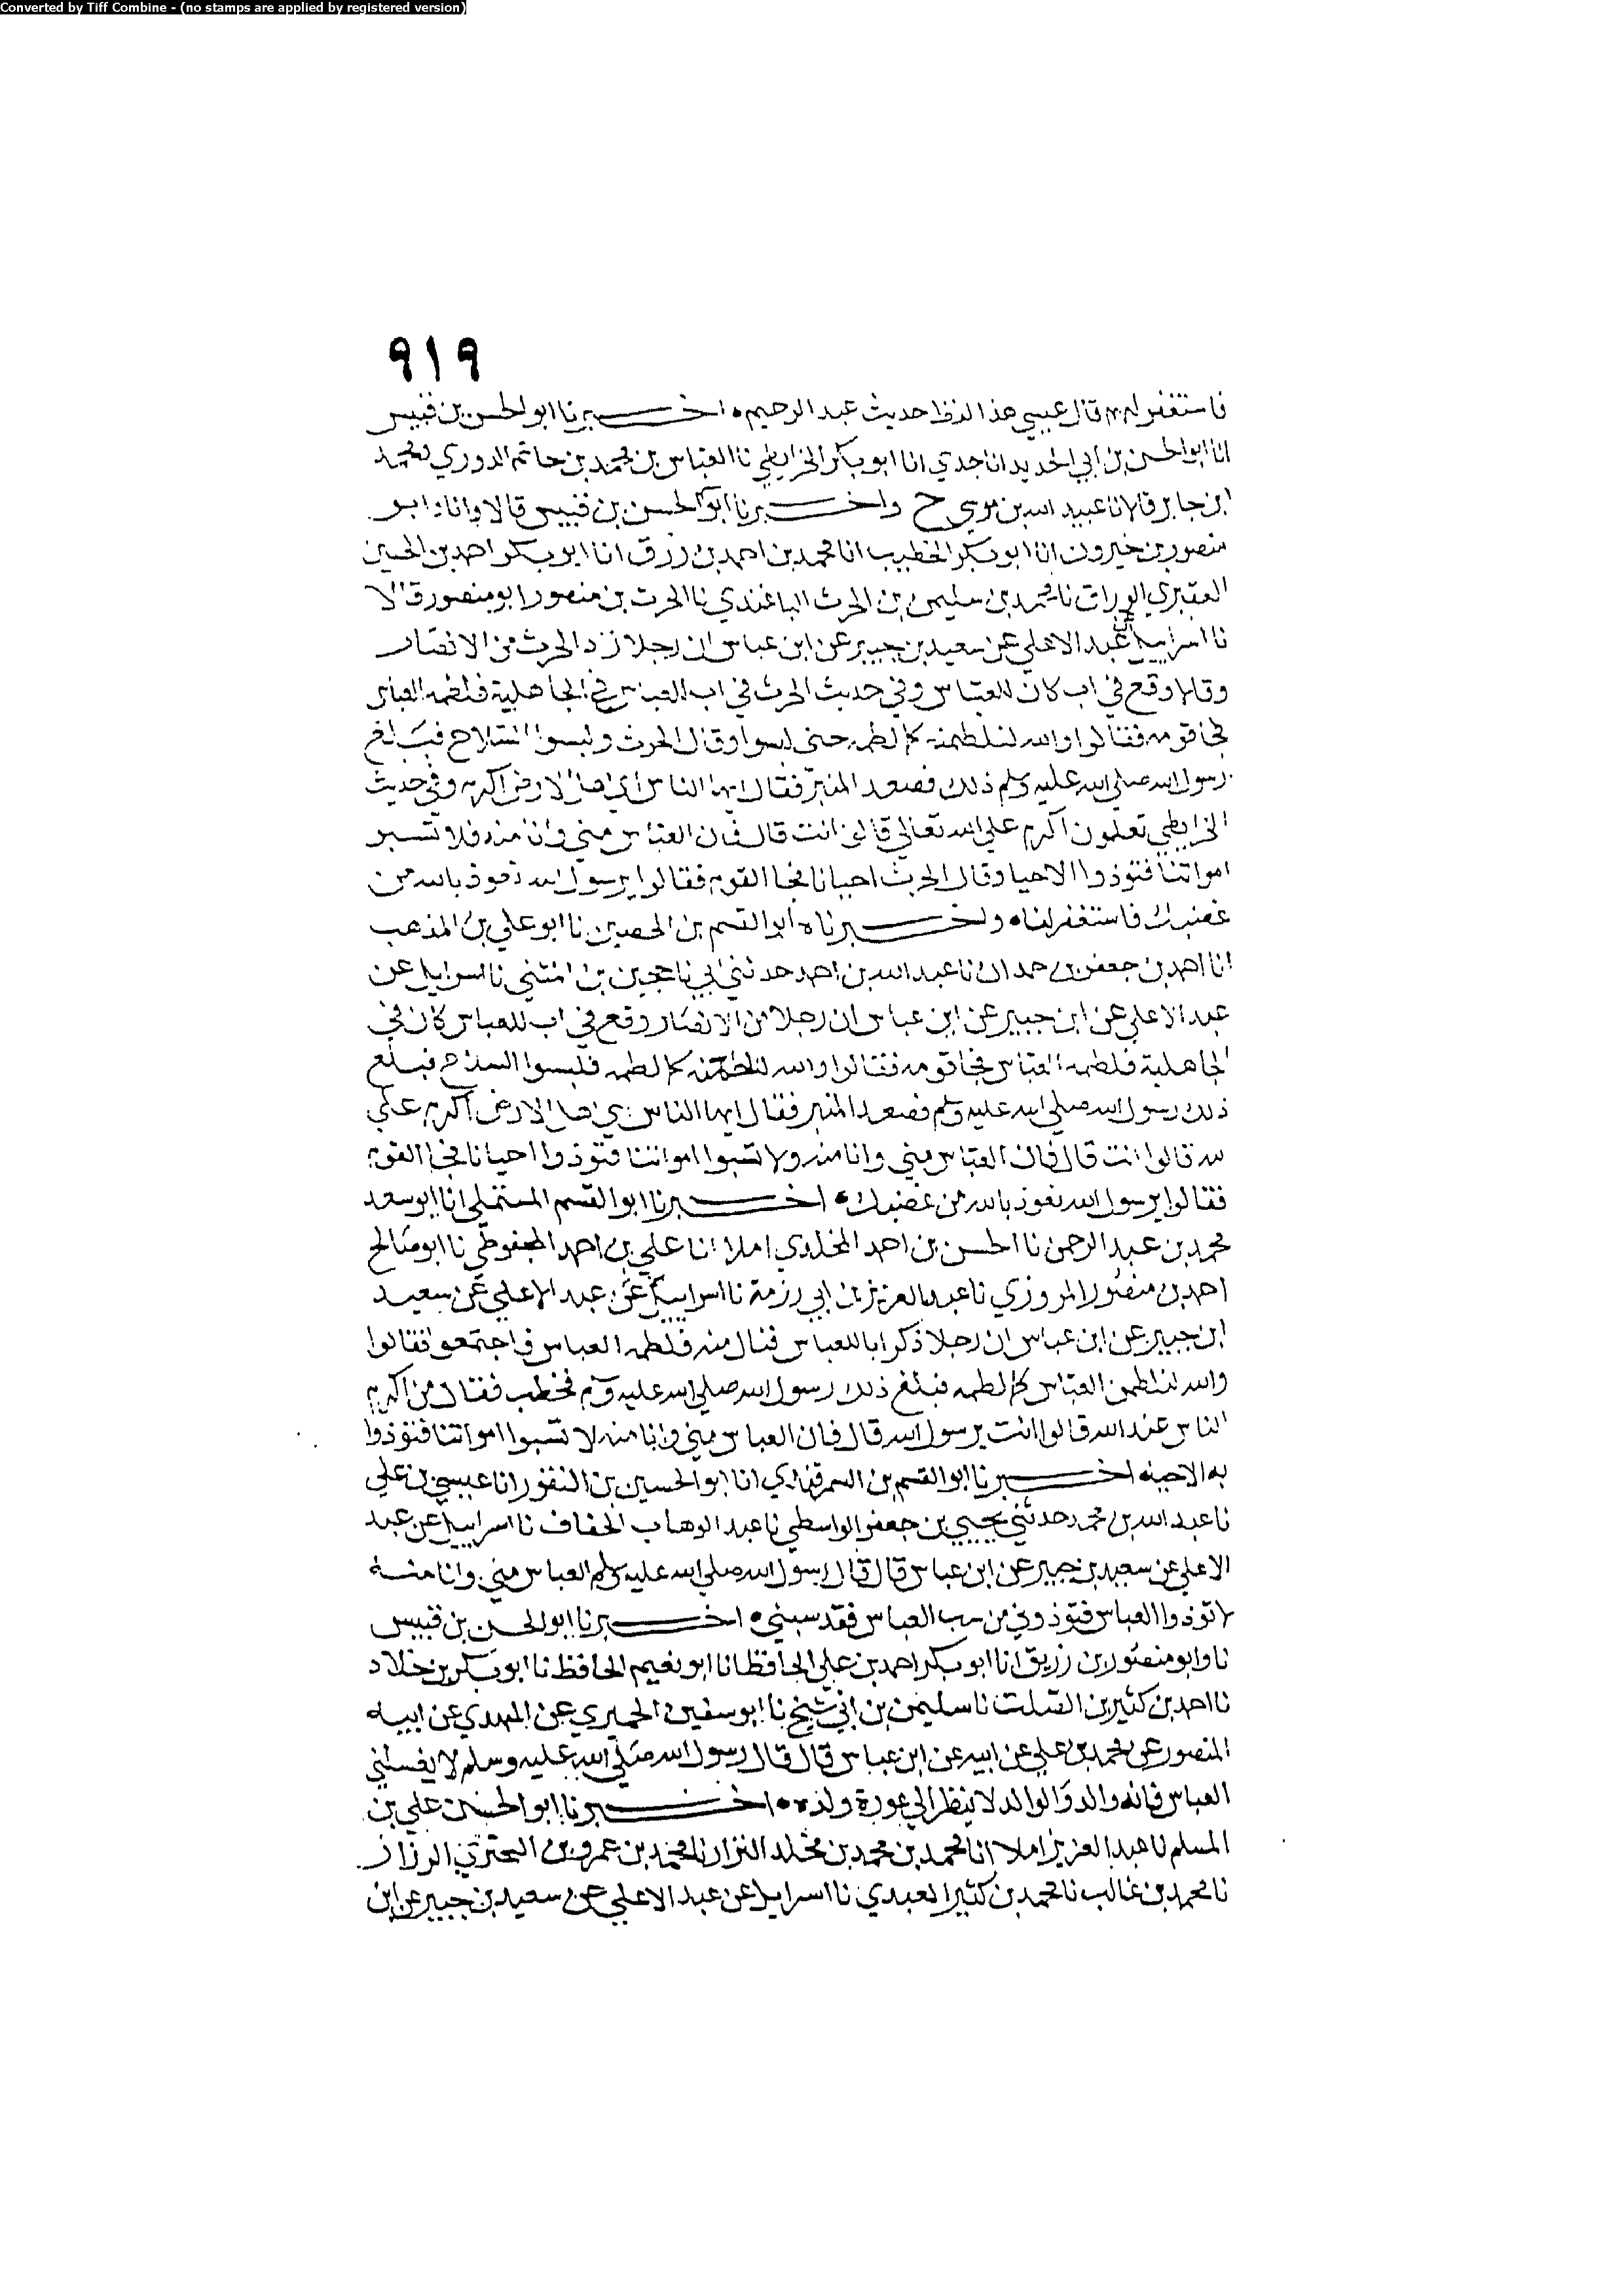 Converted by Tiff Combine - (no stamps are applied by registered version)
٩١٩
فاستغفر لهم قال عيسي هذا لفظ حديث عبد الرحيم ٥ اخبرنا ابو الحسن بن قبيس
انا ابو الحسن بن ابي الحديد انا جدي انا ابو بكر الخرايطي نا العباس بن محمد بن حاتم الدوري ومحمد
ابن جابر قالا نا عبيد الله بن موسي ح واخبرنا ابو الحسن بن قبيس قالا وانا ابو
منصور بن خيرون انا ابو بكر الخطيب انا محمد بن احمد بن رزق انا ابو بكر احمد بن الحسين
الوراق نا محمد بن سليمن بن الحرث الباغندي نا الحرث بن منصور ابو منصور قالا
نا اسرايل عن عبد الاعلي عن سعيد بن جبير عن ابن عباس ان رجلا زاد الحرث من الانصار
وقالا وقع في اب كان للعباس وفي حديث الحرث في اب العباس في الجاهلية فلطمه العباس
فجا قومه فقالوا والله لنلطمنه كما لطمه حتي لبسوا وقال الحرث ولبسوا السلاح فبلغ
رسول الله صلي الله عليه وسلم ذلك فصعد المنبر فقال ايها الناس اي اهل الارض اكرم وفي حديث
الخرايطي تعلمون اكرم علي الله تعالي قالوا انت قال فان العباس مني وانا منه فلا تسبو
امواتنا فتوذوا الاحيا وقال الحرث احيانا فجا القوم فقالوا يرسول الله نعوذ بالله من
غضبك فاستغفر لنا ٥ واخبرناه ابو القسم بن الحصين نا ابو علي بن المذهب
انا احمد بن جعفر بن حمدان نا عبد الله بن احمد حدثني ابي نا حجين بن المثني نا اسرايل عن
عبد الاعلي عن ابن جبير عن ابن عباس ان رجلا من الانصار وقع في اب للعباس كان في
الجاهلية فلطمه العباس فجا قومه فقالوا والله لنلطمنه كما لطمه فلبسوا السلاح فبلغ
ذلك رسول الله صلي الله عليه وسلم فصعد المنبر فقال ايها الناس اي اهل الارض اكرم علي
الله قالوا انت قال فان العباس مني وانا منه ولا تسبوا امواتنا فتوذوا احيانا فجا القوم
فقالوا يرسول الله نعوذ بالله من غضبك ٥ اخبرنا ابو القسم المستملي انا ابو سعد
محمد بن عبد الرحمن نا الحسن بن احمد المخلدي املا انا علي بن احمد المحفوظي نا ابو صالح
احمد بن منصور المروزي نا عبد العزيز بن ابي رزمة نا اسرايل عن عبد الاعلي عن سعيد
ابن جبير عن ابن عباس ان رجلا ذكر ابا للعباس فنال منه فلطمه العباس فاجتمعوا فقالوا
والله لنلطمن العباس كما لطمه فبلغ ذلك رسول الله صلي الله عليه وسلم فخطب فقال من اكرم
الناس عند الله قالوا انت يرسول الله قال فان العباس مني وانا منه لا تسبوا امواتنا فتوذوا
به الاحيا ٥ اخبرنا ابو القسم بن السمرقندي انا ابو الحسين بن النقور انا عيسي بن علي
نا عبد الله بن محمد حدثني يحيي بن جعفر الواسطي نا عبد الوهاب الخفاف نا اسرايل عن عبد
الاعلي عن سعيد بن جبير عن ابن عباس قال قال رسول الله صلي الله عليه وسلم العباس مني وانا منه
لا توذوا العباس فتوذوني من سب العباس فقد سبني ٥ اخبرنا ابو الحسن بن قبيس
نا وابو منصور بن زريق انا ابو بكر احمد بن علي الحافظ انا ابو نعيم الحافظ نا ابو بكر بن خلاد
نا احمد بن كثير بن الصلت نا سليمن بن ابي شيخ نا ابو سفين الحميري عن المهدي عن ابيه
المنصور عن محمد بن علي عن ابيه عن ابن عباس قال قال رسول الله صلي الله عليه وسلم لا يغسلني
العباس فانه والد والوالد لا ينظر الي عورة ولده ٥ اخبرنا ابو الحسن علي بن
المسلم نا عبد العزيز املا انا محمد بن محمد بن محمد بن مخلد البزار نا محمد بن عمرو بن البختري الرزاز
نا محمد بن غالب نا محمد بن كثير العبدي نا اسرايل عن عبد الاعلي عن سعيد بن جبير عن ابن